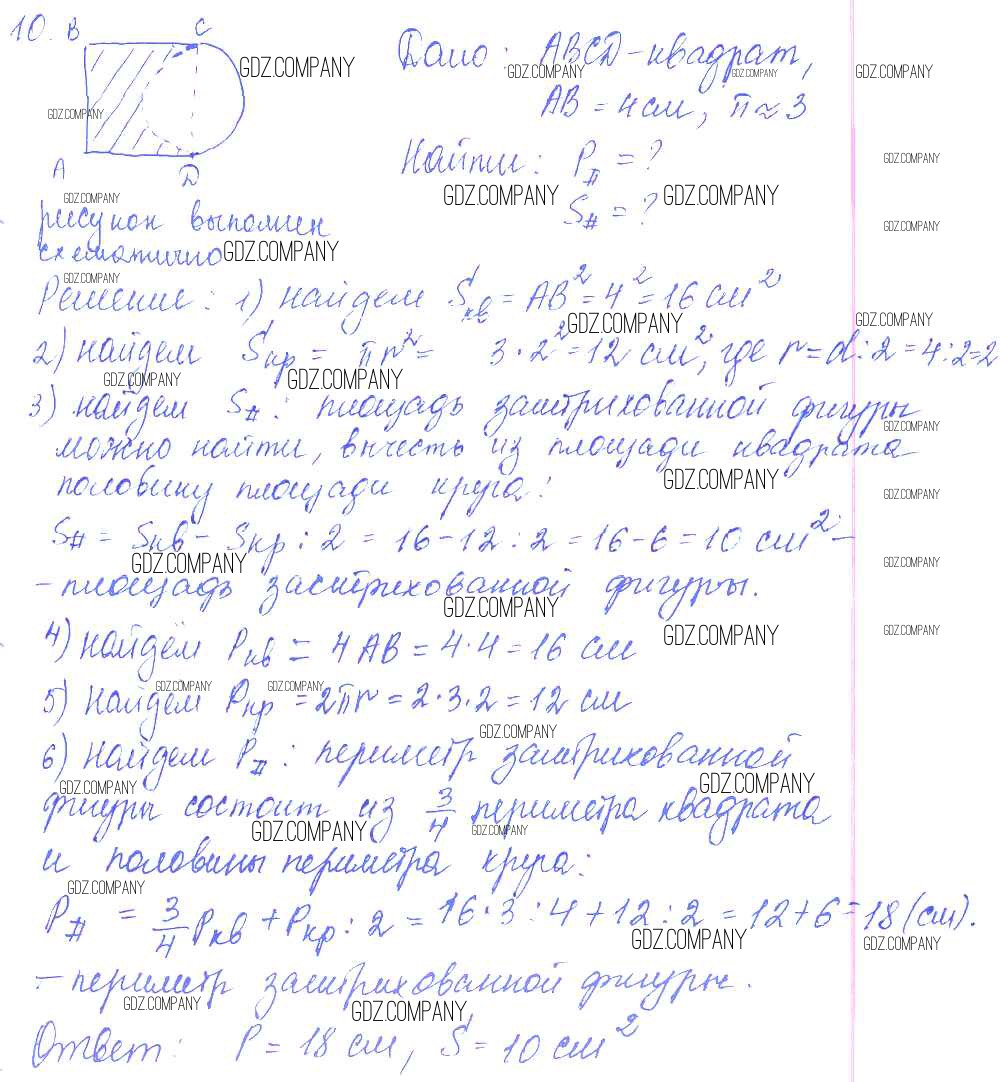 10. B C
A D
Дано: ABCD-квадрат,
AB = 4 см, π ≈ 3
Найти: P# = ?
S# = ?
рисунок выполнен
схематично
Решение: 1) найдем Sкв = AB² = 4² = 16 см²
2) найдем Sкр = πr² = 3·2² = 12 см², где r = d:2 = 4:2=2
3) найдем S#: площадь заштрихованной фигуры
можно найти, вычесть из площади квадрата
половину площади круга:
S# = Sкв - Sкр : 2 = 16-12:2 = 16-6 = 10 см² -
- площадь заштрихованной фигуры.
4) найдём Pкв = 4AB = 4·4 = 16 см
5) найдём Pкр = 2πr = 2·3·2 = 12 см
6) найдем P#: периметр заштрихованной
фигуры состоит из 3/4 периметра квадрата
и половины периметра круга:
P# = 3/4 Pкв + Pкр : 2 = 16·3:4+12:2 = 12+6=18 (см).
- периметр заштрихованной фигуры.
Ответ: P = 18 см, S = 10 см²
GDZ.COMPANY